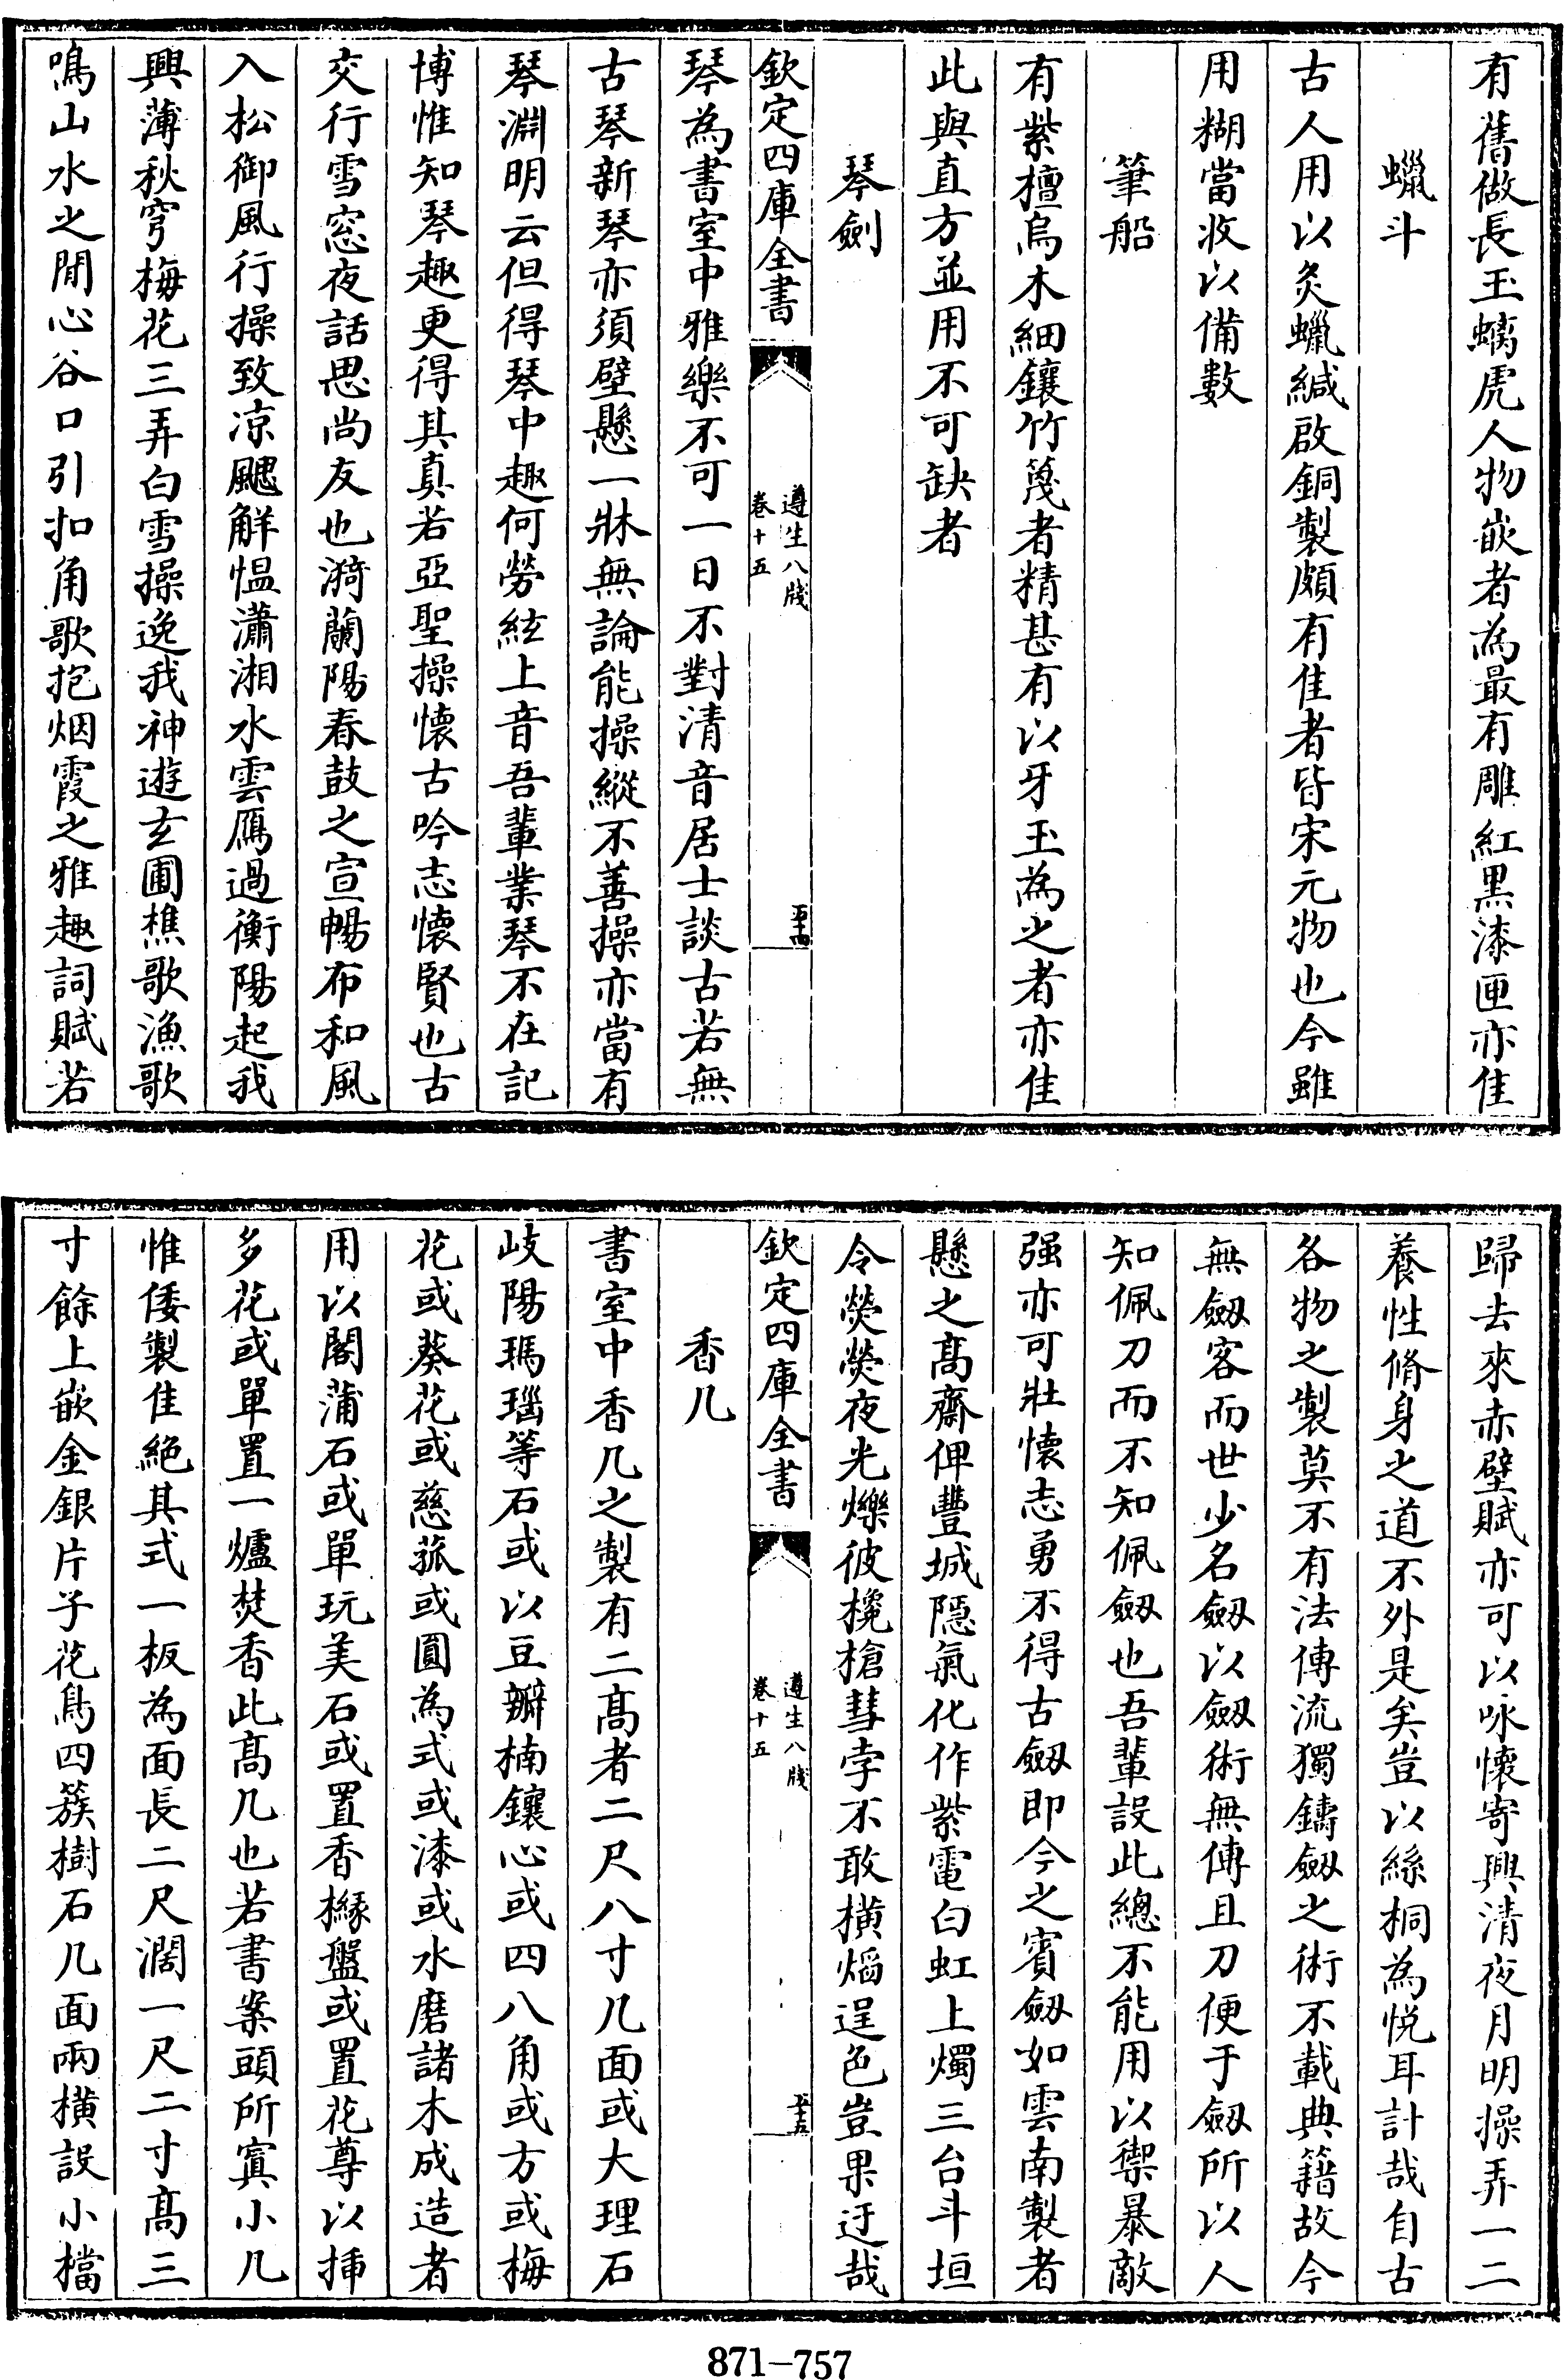 有舊做長玉螭虎人物嵌者為最有雕紅黑漆匣亦佳
蠟斗
古人用以炙蠟緘啟銅製頗有佳者皆宋元物也今雖
用糊當收以備數
筆船
有紫檀烏木細鑲竹篾者精甚有以牙玉為之者亦佳
此與直方並用不可缺者
琴劍
欽定四庫全書
遵生八牋
卷十五
五十四
琴為書室中雅樂不可一日不對清音居士談古若無
古琴新琴亦須壁懸一牀無論能操縱不善操亦當有
琴淵明云但得琴中趣何勞絃上音吾輩業琴不在記
博惟知琴趣更得其真若亞聖操懷古吟志懷賢也古
交行雪窓夜話思尚友也漪蘭陽春鼓之宣暢布和風
入松御風行操致凉颸解愠瀟湘水雲鴈過衡陽起我
興薄秋穹梅花三弄白雪操逸我神遊玄圃樵歌漁歌
鳴山水之閒心谷口引扣角歌抱烟霞之雅趣詞賦若
歸去來赤壁賦亦可以咏懷寄興清夜月明操弄一二
養性脩身之道不外是矣豈以絲桐為悅耳計哉自古
各物之製莫不有法傳流獨鑄劔之術不載典籍故今
無劔客而世少名劔以劔術無傳且刀便于劔所以人
知佩刀而不知佩劔也吾輩設此總不能用以禦暴敵
强亦可壯懷志勇不得古劔即今之賓劔如雲南製者
懸之髙齋俾豐城隠氣化作紫電白虹上燭三台斗垣
令熒熒夜光爍彼欃槍彗孛不敢橫熖逞色豈果迂哉
欽定四庫全書
遵生八牋
卷十五
五十五
香几
書室中香几之製有二髙者二尺八寸几面或大理石
岐陽瑪瑙等石或以豆瓣楠鑲心或四八角或方或梅
花或葵花或慈菰或圓為式或漆或水磨諸木成造者
用以閣蒲石或單玩美石或置香櫞盤或置花尊以揷
多花或單置一爐焚香此髙几也若書案頭所寘小几
惟倭製佳絕其式一板為面長二尺濶一尺二寸髙三
寸餘上嵌金銀片子花鳥四簇樹石几面兩橫設小檔
871-757